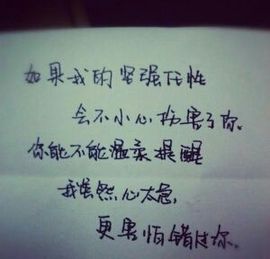 如果我的坚强任性
会不小心伤害了你
你能不能温柔提醒
我虽然心太急
更害怕错过你